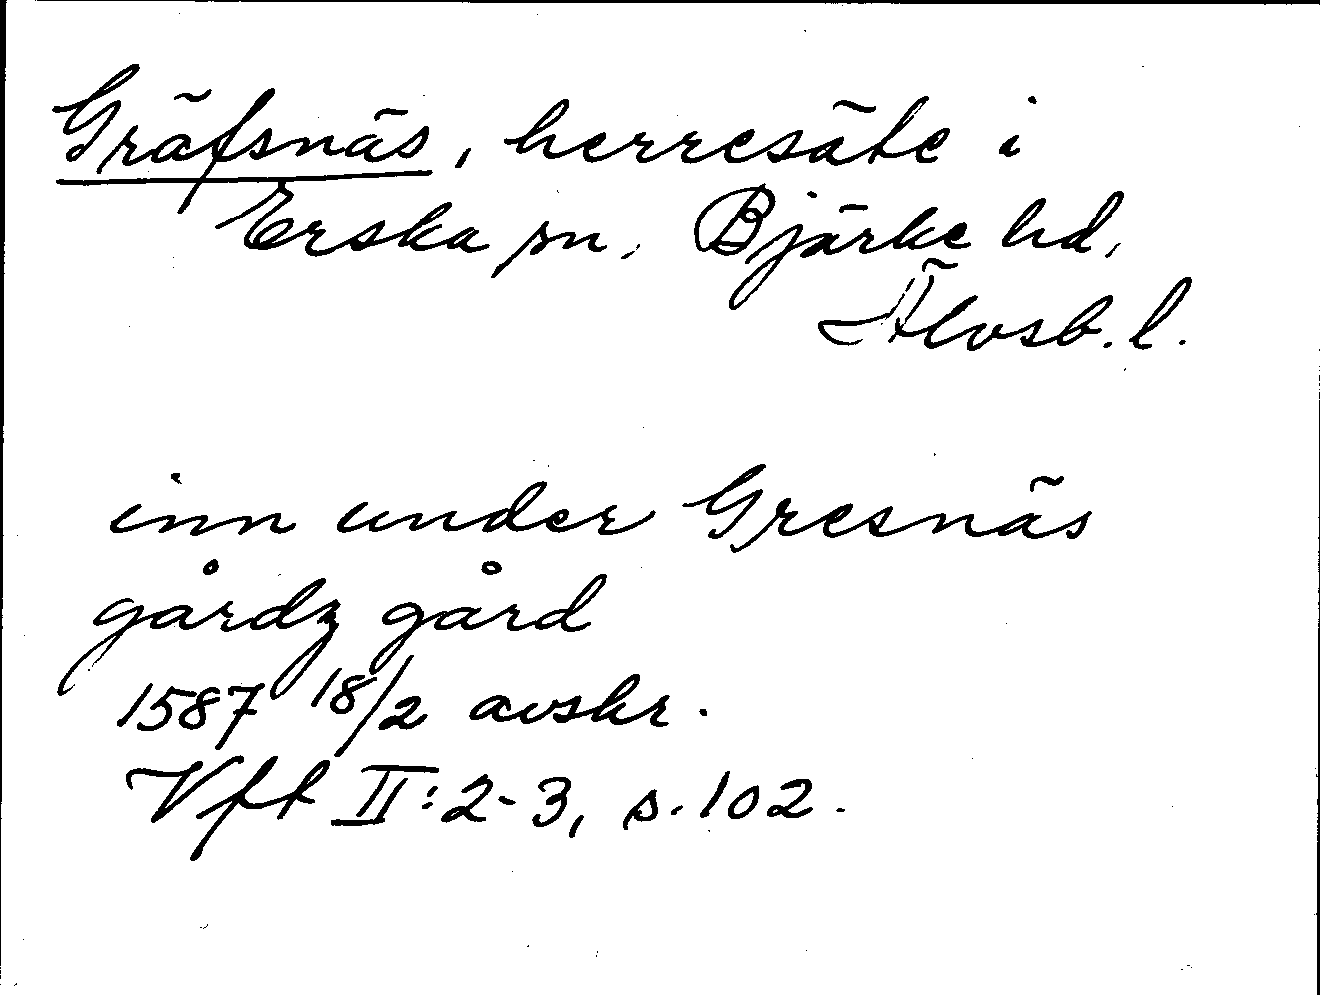 Gräfsnäs, herresäte i
Erska sn, Bjärke hd,
Älvsb. l.
inn under Gresnäs
gårdz gård
1587 18/2 avskr.
Vft II:2-3, s. 102.